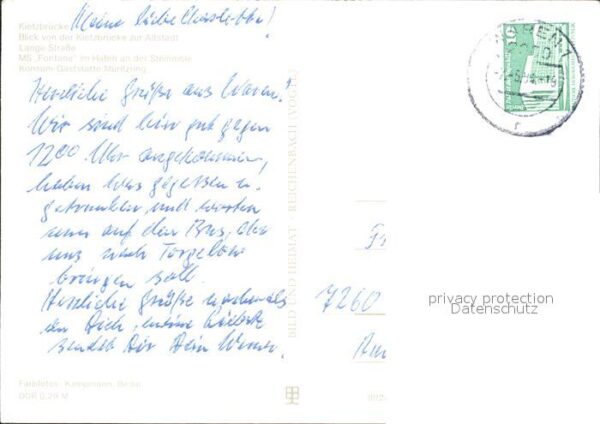 Kietzbrücke
Blick von der Kietzbrücke zur Altstadt
Lange Straße
MS „Fontane" im Hafen an der Steinmole
Konsum-Gaststätte Müritzring
Meine liebe
Herzliche Grüße aus Waren!
Wir sind hier gut gegen
1200 Uhr angekommen,
haben was gegessen u.
getrunken, und warten
nun auf den Bus, der
uns nach Torgelow
bringen soll.
Herzliche Grüße nochmals
an Dich, meine Liebste
sendet Dir Dein Werner.
Farbfotos: Kampmann, Berlin
DDR 0,20 M
BILD UND HEIMAT REICHENBACH (VOGTL)
WAREN 1
10
DDR
7260
privacy protection
Datenschutz